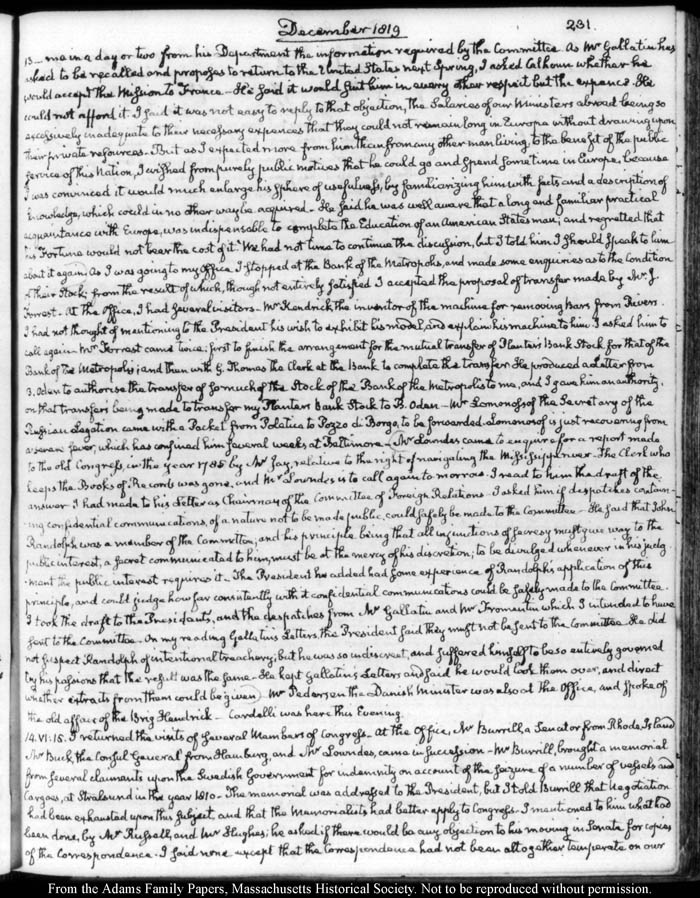 December 1819
231
13— me in a day or two from his Department the information required by the Committee. As Mr Gallatin has
asked to be recalled and proposes to return to the United States next Spring, I asked Calhoun whether he
would accept the Mission to France— He said it would suit him in every other respect but the expence. He
could not afford it. I said it was not easy to reply to that objection, the Salaries of our Ministers abroad being so
excessively inadequate to their necessary expences that they could not remain long in Europe without drawing upon
their private resources— But as I expected more from him than from any other man living, to the benefit of the public
service of this Nation, I wished from purely public motives that he could go and spend some time in Europe, because
I was convinced it would much enlarge his sphere of usefulness, by familiarizing him with facts and a description of
knowledge, which could in no other way be acquired— He said he was well aware that a long and familiar practical
acquaintance with Europe, was indispensable to complete the Education of an American Statesman, and regretted that
his Fortune would not bear the cost of it. We had not time to continue the discussion, but I told him I should speak to him
about it again. As I was going to my Office I stopped at the Bank of the Metropolis, and made some enquiries as to the Condition
of their Stock; from the result of which, though not entirely satisfied I accepted the proposal of transfer made by Mr J.
Forrest— At the Office, I had several visitors— Mr Kendrick the inventor of the machine for removing bars from Rivers.
I had not thought of mentioning to the President his wish to exhibit his model, and explain his machine to him. I asked him to
call again. Mr Forrest came twice; first to finish the arrangement for the mutual transfer of Planters Bank Stock for that of the
Bank of the Metropolis; and then with G. Thomas the Clerk at the Bank to complete the transfer. He produced a Letter from
B. Oden to authorise the transfer of so much of the Stock of the Bank of the Metropolis to me, and I gave him an authority,
on that transfers being made to transfer my Planters Bank Stock to B. Oden— Mr Lomonosof the Secretary of the
Russian Legation came with a Packet from Poletica to Pozzo di Borgo, to be forwarded. Lomonosof is just recovering from
a severe fever, which has confined him several weeks at Baltimore— Mr Lowndes came to enquire for a report made
to the old Congress, in the year 1785 by Mr Jay, relative to the right of navigating the Mississippi river. The Clerk who
keeps the Books of Records was gone, and Mr Lowndes is to call again to morrow. I read to him the draft of the
answer I had made to his Letter as Chairman of the Committee of Foreign Relations. I asked him if despatches contain-
ing confidential communications, of a nature not to be made public, could safely be made to the Committee— He said that John
Randolph was a member of the Committee; and his principle being that all injunctions of secresy must give way to the
public interest, a secret communicated to him, must be at the mercy of his discretion; to be divulged whenever in his judg-
ment the public interest requires it. The President he added had some experience of Randolph's application of this
principle, and could judge how far consistently with it confidential communications could be safely made to the Committee.
I took the draft to the President's, and the despatches from Mr Gallatin and Mr Fromentin which I intended to have
sent to the Committee. On my reading Gallatin's Letters, the President said they must not be sent to the Committee. He did
not suspect Randolph of intentional treachery; but he was so indiscreet, and suffered himself to be so entirely governed
by his passions that the result was the same. He kept Gallatin's Letters and said he would look them over, and direct
whether extracts from them could be given. Mr Pedersen the Danish Minister was also at the Office, and spoke of
the old affair of the Brig Hendrick— Cardelli was here this Evening.
14. VI:15. I returned the visits of several Members of Congress— At the Office, Mr Burrill, a Senator from Rhode Island
Mr Buck, the Consul General from Hamburg, and Mr Lowndes, came in succession— Mr Burrill, brought a memorial
from several claimants upon the Swedish Government for indemnity on account of the seizure of a number of vessels and
Cargoes, at Stralsund in the year 1810— The memorial was addressed to the President, but I told Burrill that negotiation
had been exhausted upon this subject, and that the Memorialists had better apply to Congress. I mentioned to him what had
been done, by Mr Russell, and Mr Hughes; he asked if there would be any objection to his moving in Senate for copies
of the Correspondence. I said none except that the Correspondence had not been altogether temperate on our
From the Adams Family Papers, Massachusetts Historical Society. Not to be reproduced without permission.